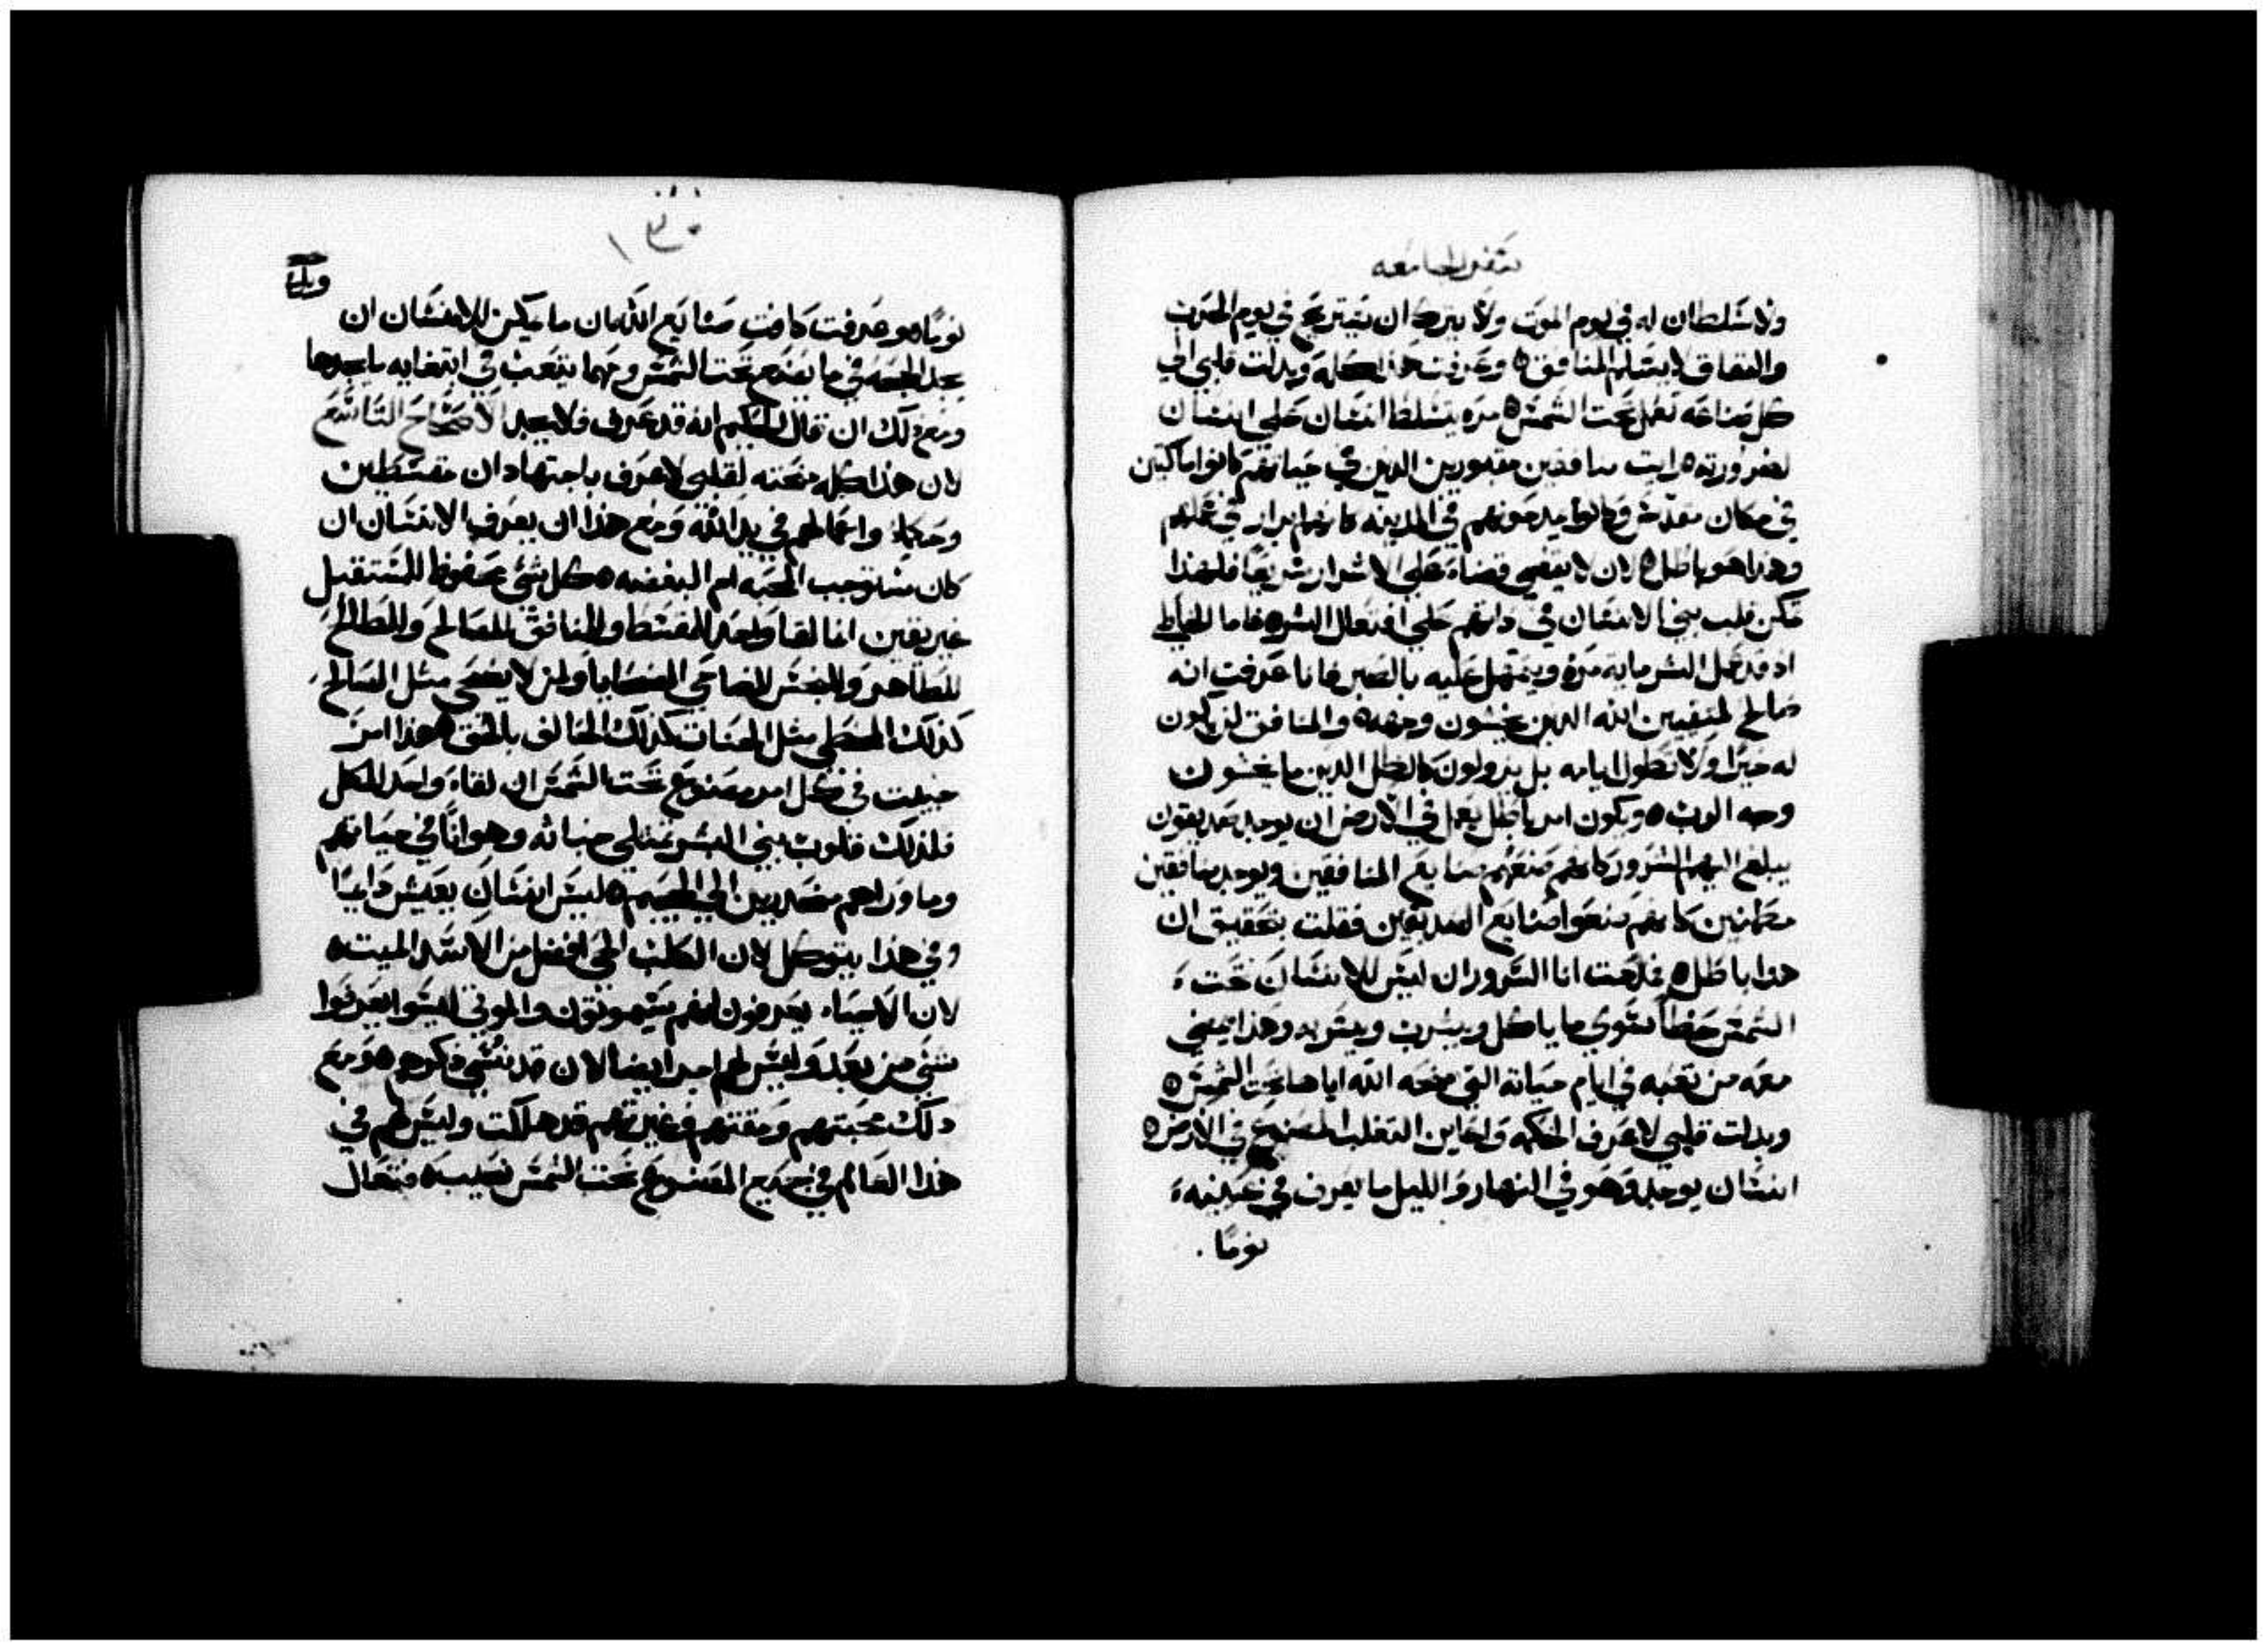 سفر الجامعه
ولا سلطان له في يوم الموت ولا يترك ان يستريح في يوم الحرب
والنفاق لا يسلم المنافق ٥ وعرفت هذا كله وبدلت قلبي الي
كل صناعه تعمل تحت الشمس ٥ مره يتسلط انسان علي انسان
لضرورته ٥ رايت منافقين مقبورين الذين في حياتهم كانوا ماكثين
في مكان مقدس وكانوا يمدحونهم في المدينه كانهم ابرار في عملهم
وهذا هو باطل ٥ لان لا ينقضي قضاء علي الاشرار سريعا فلهذا
تمكن قلب بني الانسان في ذاتهم علي افتعال الشر ٥ فاما الخاطي
اذ قد عمل الشر مايه مره ويتمهل عليه بالصبر فانا عرفت انه
صالح لمتقيين الله الذين يخشون وجهه ٥ والمنافق لن يكون
له خيرا ولا تطول ايامه بل يزولون كالظل الذين ما يخشون
وجه الرب ٥ ويكون امر باطل يعمل في الارض ان يوجد صديقون
يبلغ اليهم الشرور كانهم صنعهم صنايع المنافقين ويوجد منافقين
مطمنين كانهم صنعوا صنايع الصديقين فقلت بتحقيق ان
هذا باطل ٥ فمدحت انا السرور ان ليس للانسان تحت
الشمس حظا سوي ما ياكل ويشرب ويسر به وهذا يمضي
معه من تعبه في ايام حياته التي منحه الله اياها تحت الشمس ٥
وبدلت قلبي لاعرف الحكمه واعاين التقلب المصنوع في الارض ٥
انسان يوجد وهو في النهار والليل ما يعرف في عينيه
نوما
١٣٠
نوما ٥ وعرفت كافت صنايع الله بان ما يمكن للانسان ان
يجد الحجه في ما يصنع تحت الشمس ومهما يتعب في ابتغايه ما يجدها
ومع ذلك ان قال الحكيم انه قد عرف فلا يجد الاصحاح التاسع
لان هذا كله منحته لقلبي لاعرف باجتهاد ان مقسطين
وحكما واعمالهم في يد الله ومع هذا ان يعرف الانسان ان
كان مستوجب المحبه ام البغضه ٥ كل شي محفوظ للمستقبل
غير يقين انما لقا واحد للمقسط والمنافق للصالح والطالح
للطاهر والنجس للضاحي الضحايا ولمن لا يضحي مثل الصالح
كذلك المخطي مثل الحنات كذلك الحالف بالحق ٥ هذا امر
خبيث في كل امر مصنوع تحت الشمس ان لقاء واحد للكل
فلذلك قلوب بني البشر تمتلي خباثه وهوانا في حياتهم
وما وراهم منحدرين الي الجحيم ٥ ليس انسان يعيش دايما
وفي هذا يتوكل لان الكلب الحي افضل من الاسد الميت ٥
لان الاحياء يعرفون انهم سيموتون والموتي ليسوا يعرفوا
شي من بعد وليس لهم اجر ايضا لان قد نسي ذكرهم ٥ ومع
ذلك محبتهم ومقتهم وغيرتهم قد هلكت وليس لهم في
هذا العالم في جميع المصنوع تحت الشمس نصيب ٥ فتعال